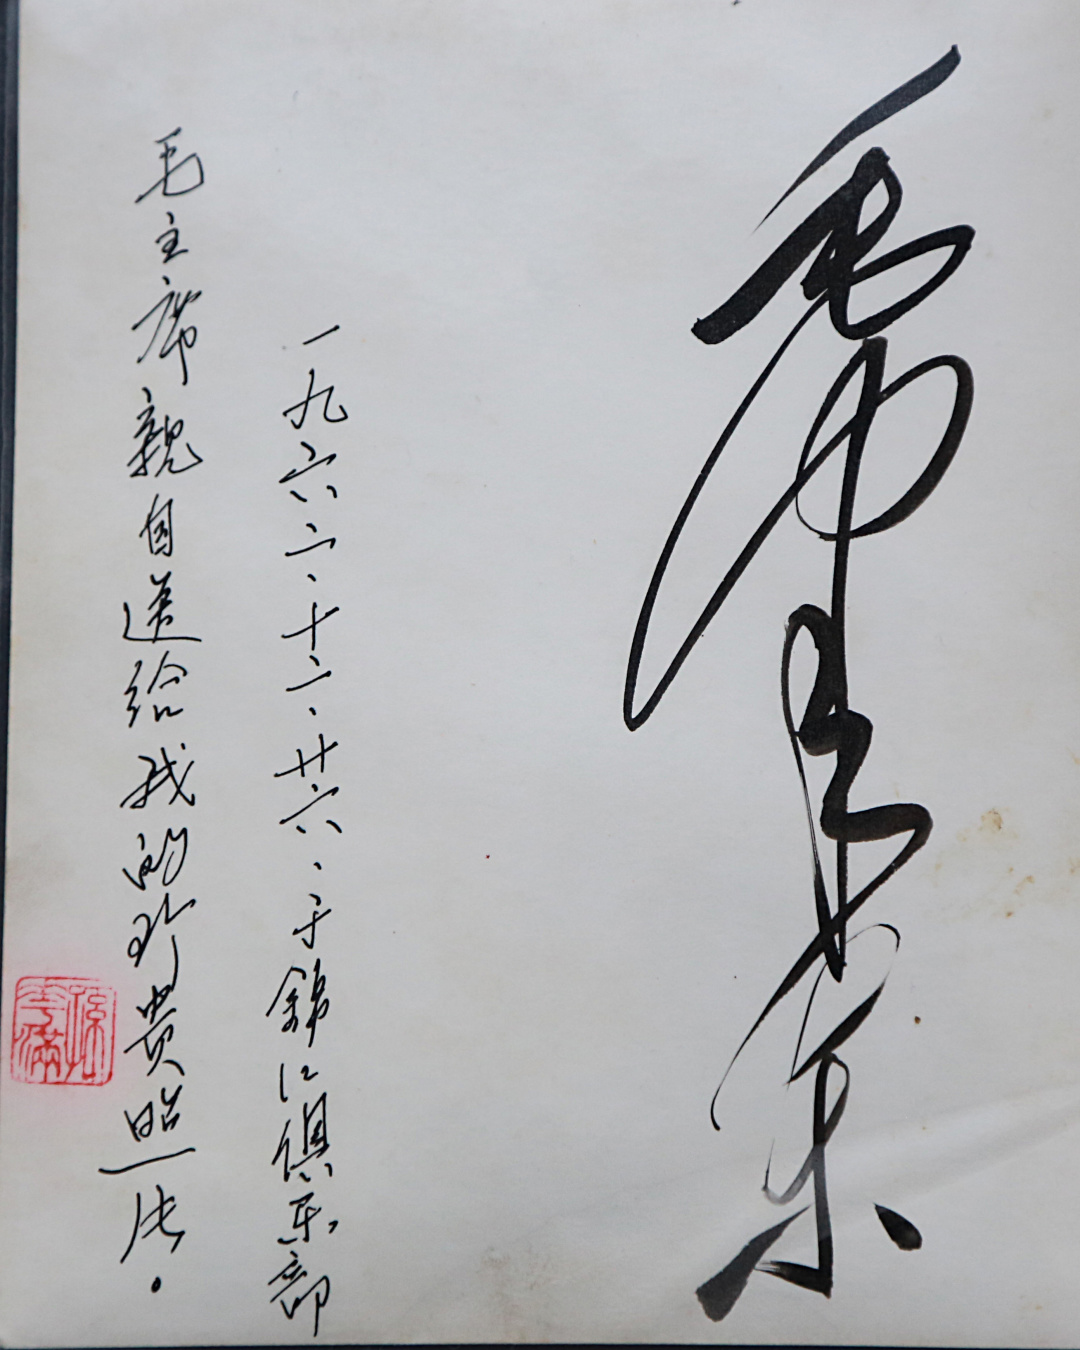 毛澤東
一九六二、十二、廿六、于錦江俱乐部
毛主席親自送给我的珍贵照片。